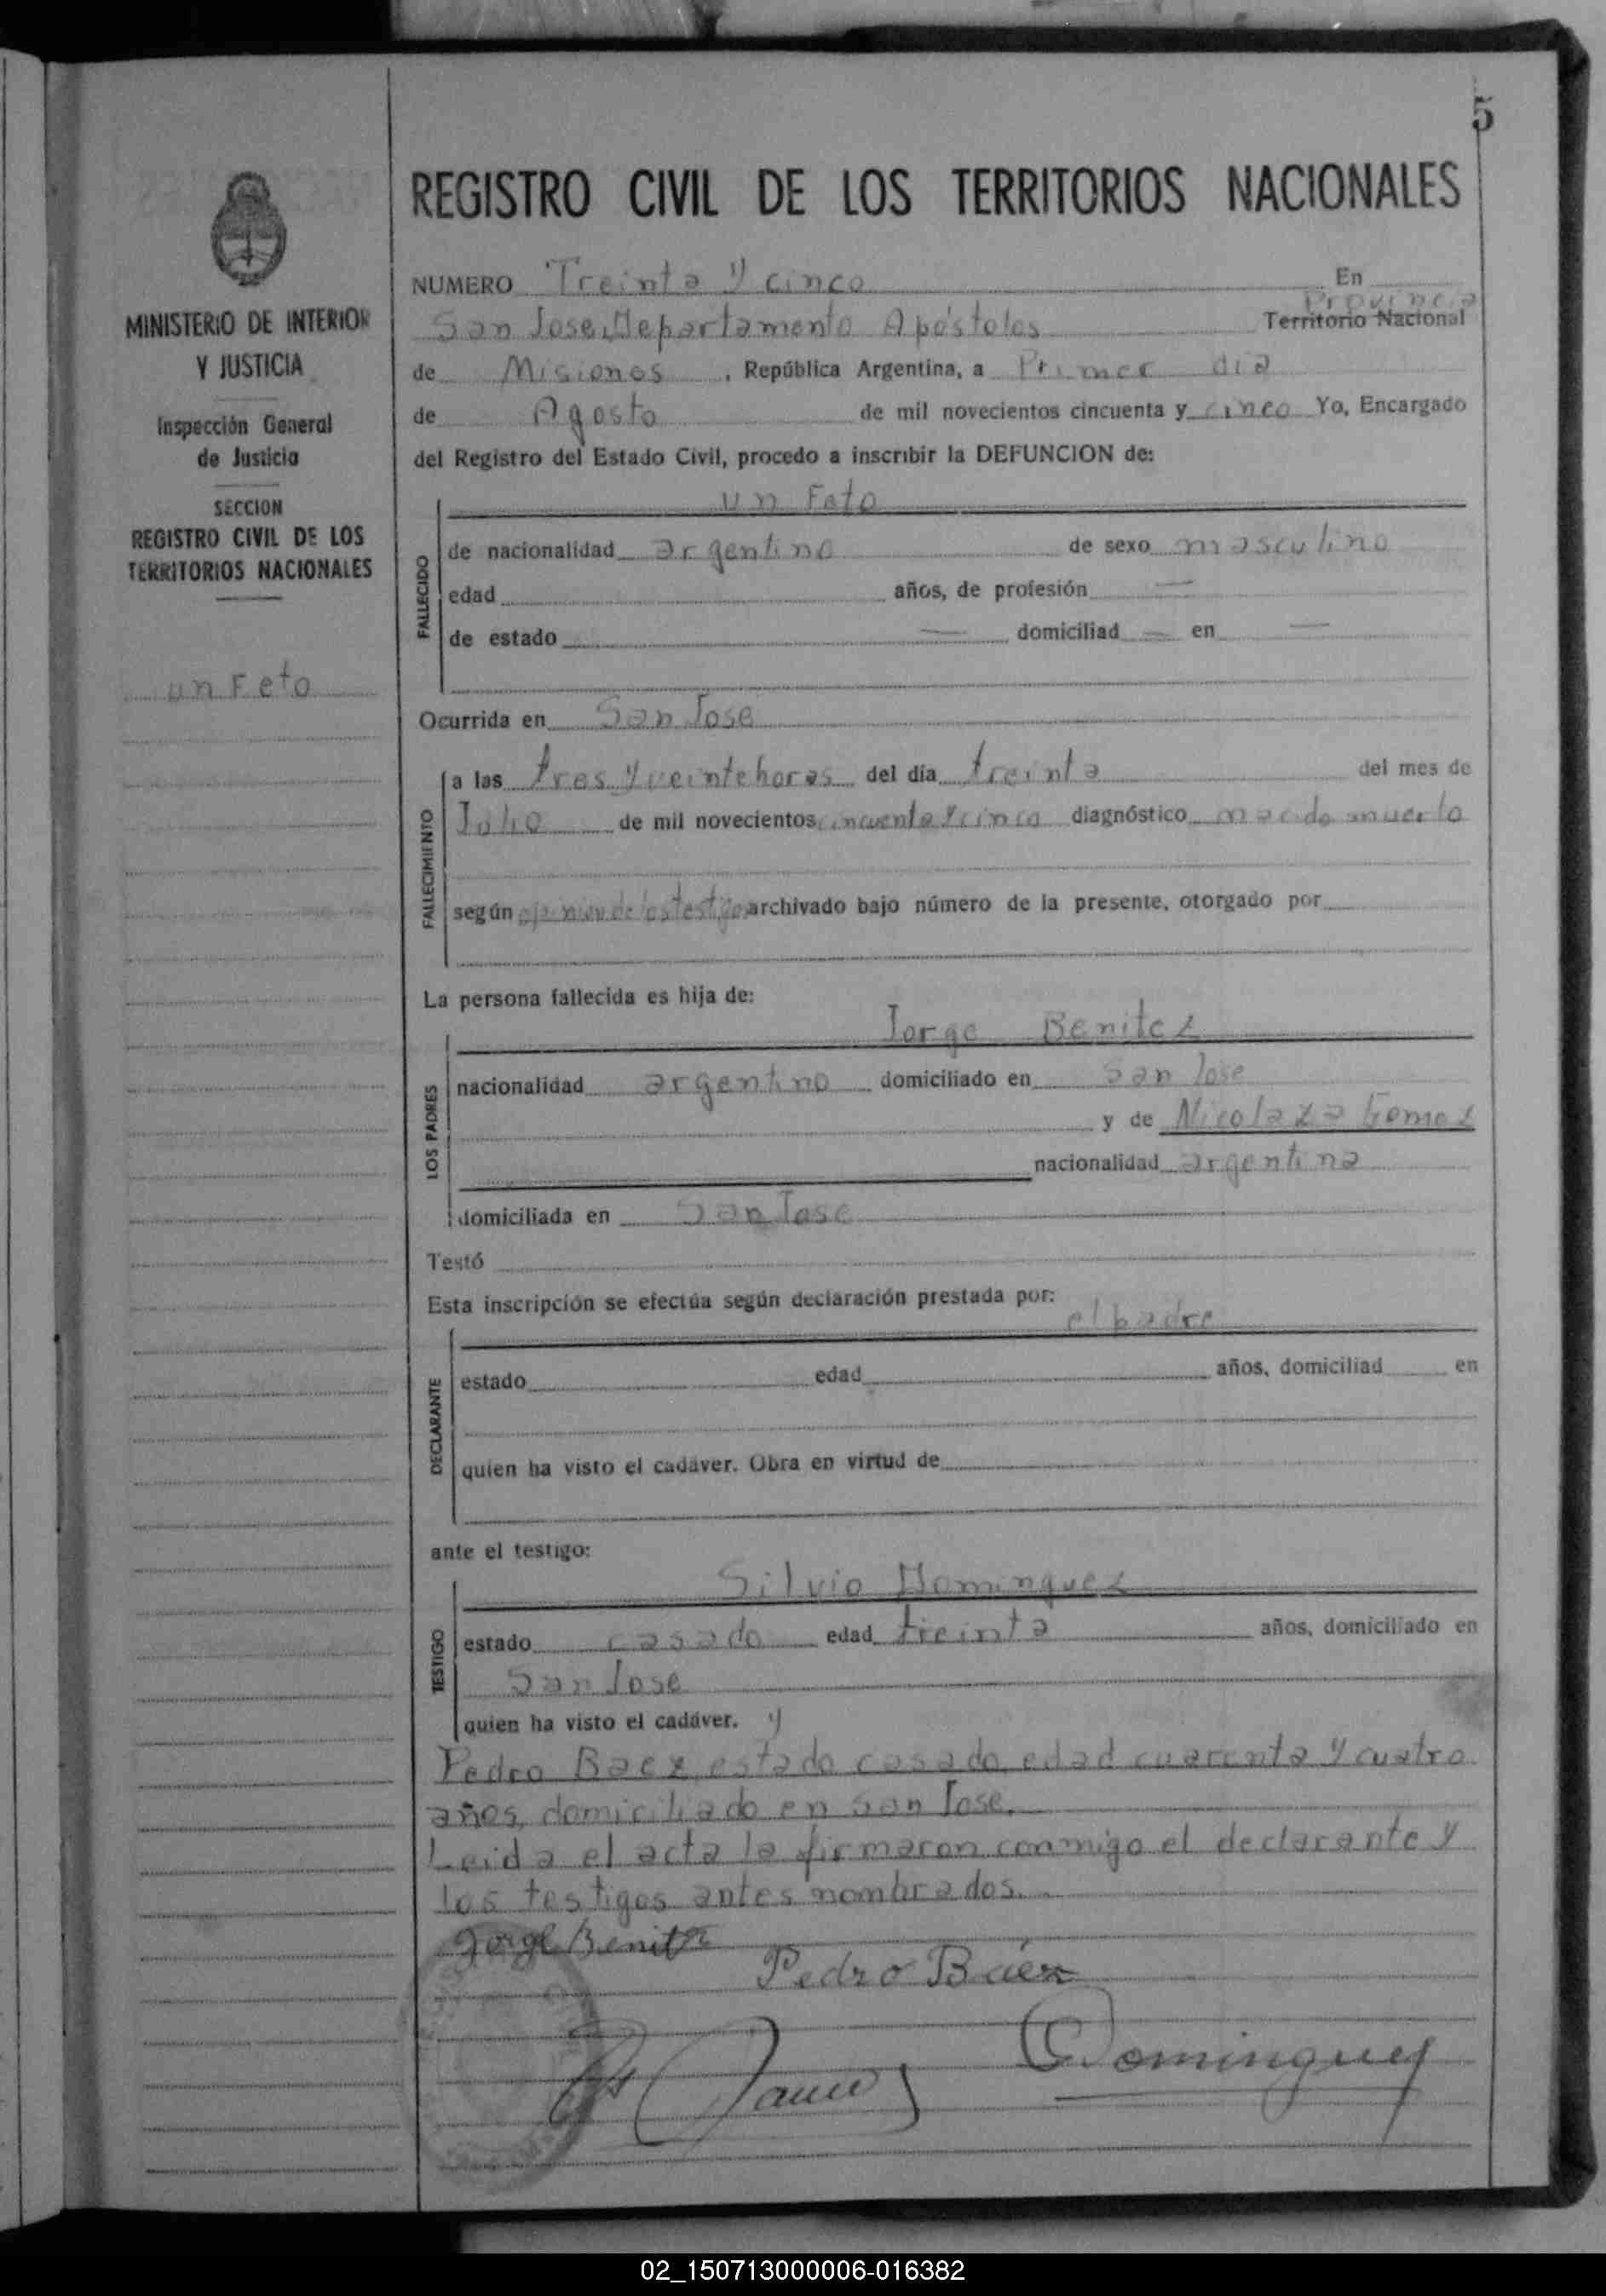 5
REGISTRO CIVIL DE LOS TERRITORIOS NACIONALES
MINISTERIO DE INTERIOR
Y JUSTICIA
Inspección General
de Justicia
SECCION
REGISTRO CIVIL DE LOS
TERRITORIOS NACIONALES
un Feto
NUMERO Treinta y cinco En
Provincia
San Jose, Departamento Apóstoles Territorio Nacional
de Misiones, República Argentina, a Primer dia
de Agosto de mil novecientos cincuenta y cinco Yo, Encargado
del Registro del Estado Civil, procedo a inscribir la DEFUNCION de:
un Feto
FALLECIDO
de nacionalidad argentino de sexo masculino
edad años, de profesión —
de estado — domiciliad — en —
Ocurrida en San Jose
FALLECIMIENTO
a las tres y veinte horas del día treinta del mes de
Julio de mil novecientos cincuenta y cinco diagnóstico nacido muerto
según de los testigos archivado bajo número de la presente, otorgado por
La persona fallecida es hija de:
Jorge Benitez
LOS PADRES
nacionalidad argentino domiciliado en San Jose
y de Nicolaza Gomez
nacionalidad argentina
domiciliada en San Jose
Testó
Esta inscripción se efectúa según declaración prestada por:
el padre
DECLARANTE
estado edad años, domiciliad en
quien ha visto el cadáver. Obra en virtud de
ante el testigo:
Silvio Dominguez
TESTIGO
estado casado edad treinta años, domiciliado en
San Jose
quien ha visto el cadáver. y
Pedro Baez, estado casado, edad cuarenta y cuatro
años, domiciliado en San Jose.
Leida el acta la firmaron conmigo el declarante y
los testigos antes nombrados.
Jorge Benitez
Pedro Báez
Dominguez
02_150713000006-016382